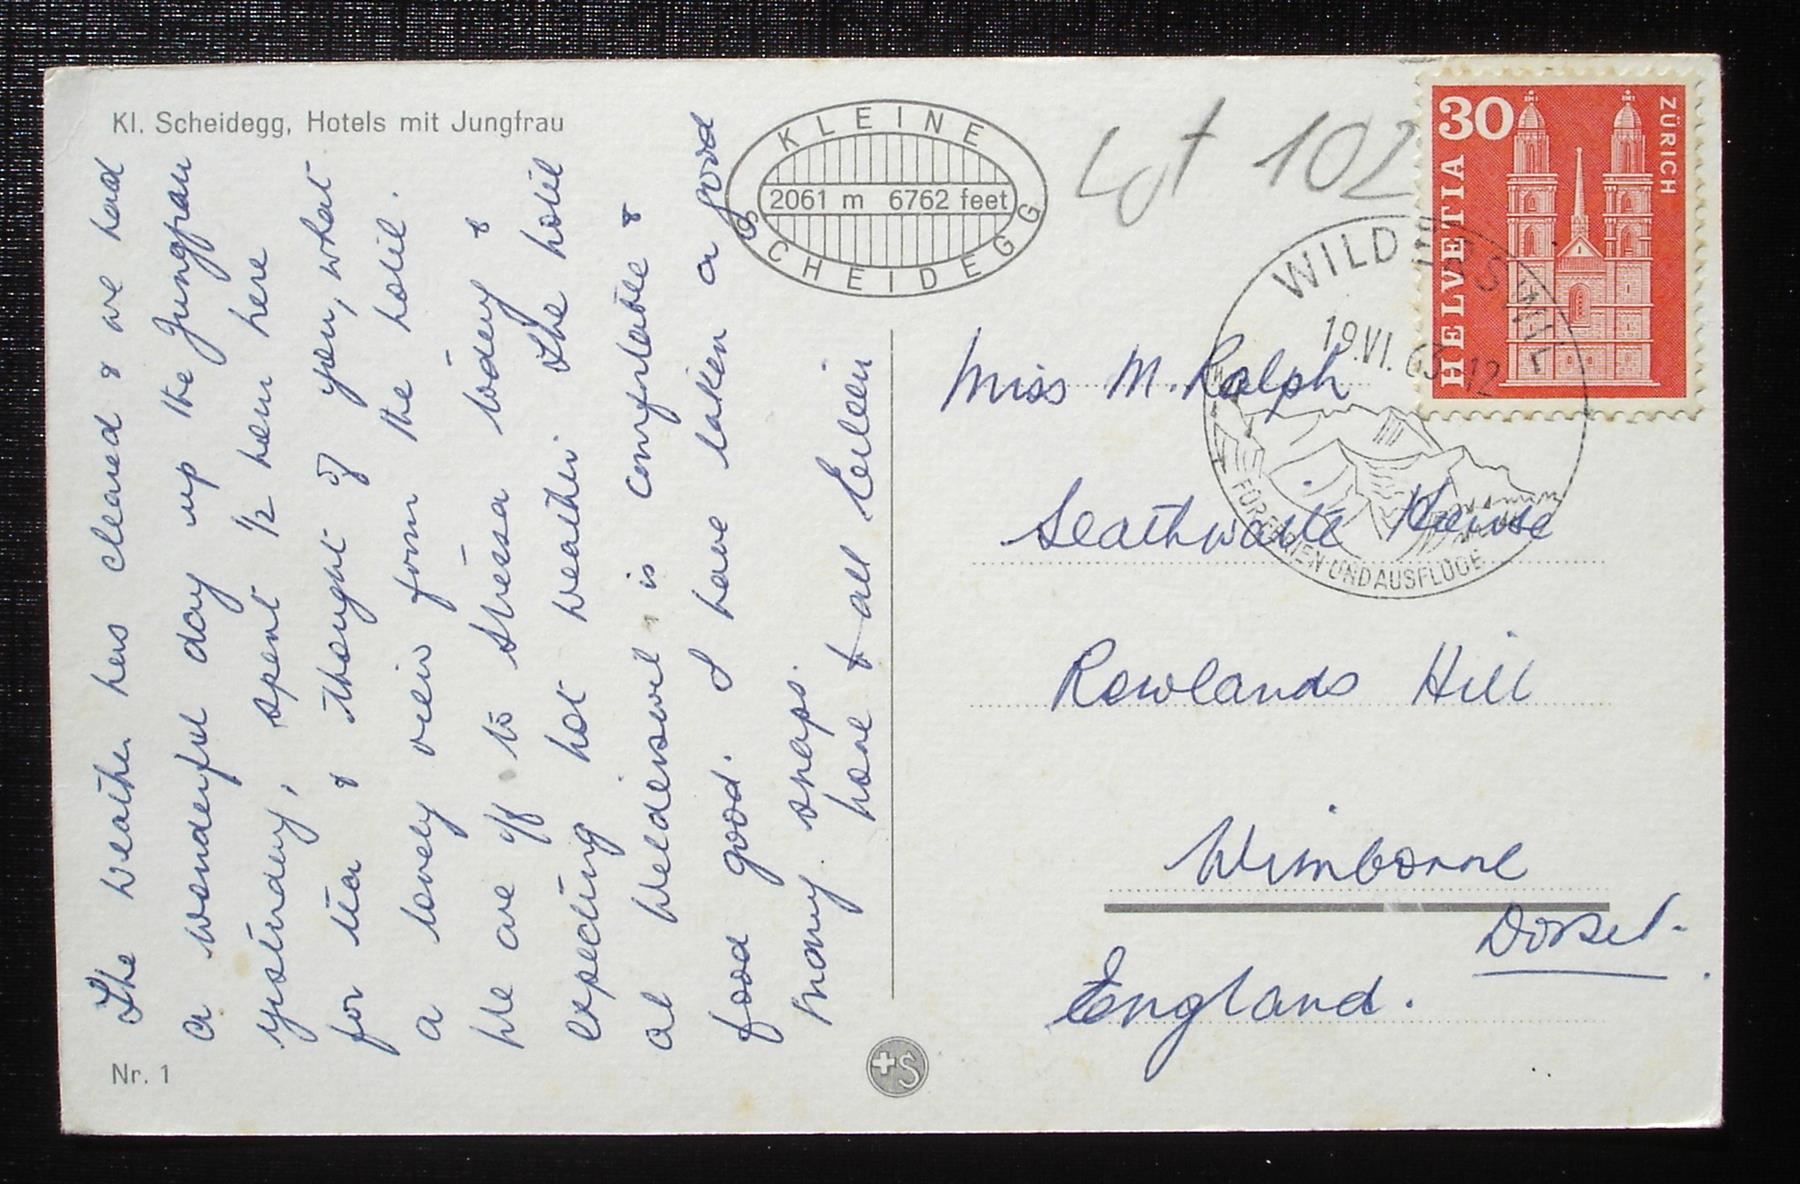 Kl. Scheidegg, Hotels mit Jungfrau
The weather has cleared & we had
a wonderful day up the Jungfrau
yesterday, spent ½ hour here
for tea & thought of you, what
a lovely view from the hotel.
We are off to Stressa today &
expecting hot weather. The hotel
at Weldeswil is comfortable &
food good. I have taken a good
many snaps.
love to all Eileen
Nr. 1
KLEINE
2061 m 6762 feet
SCHEIDEGG
Lot 102
30
ZÜRICH
HELVETIA
WILDERSWIL
19.VI.63.12
FÜR FERIEN UND AUSFLÜGE
Miss M. Ralph
Seathwaite House
Rowlands Hill
Wimborne
Dorset.
England.
+S